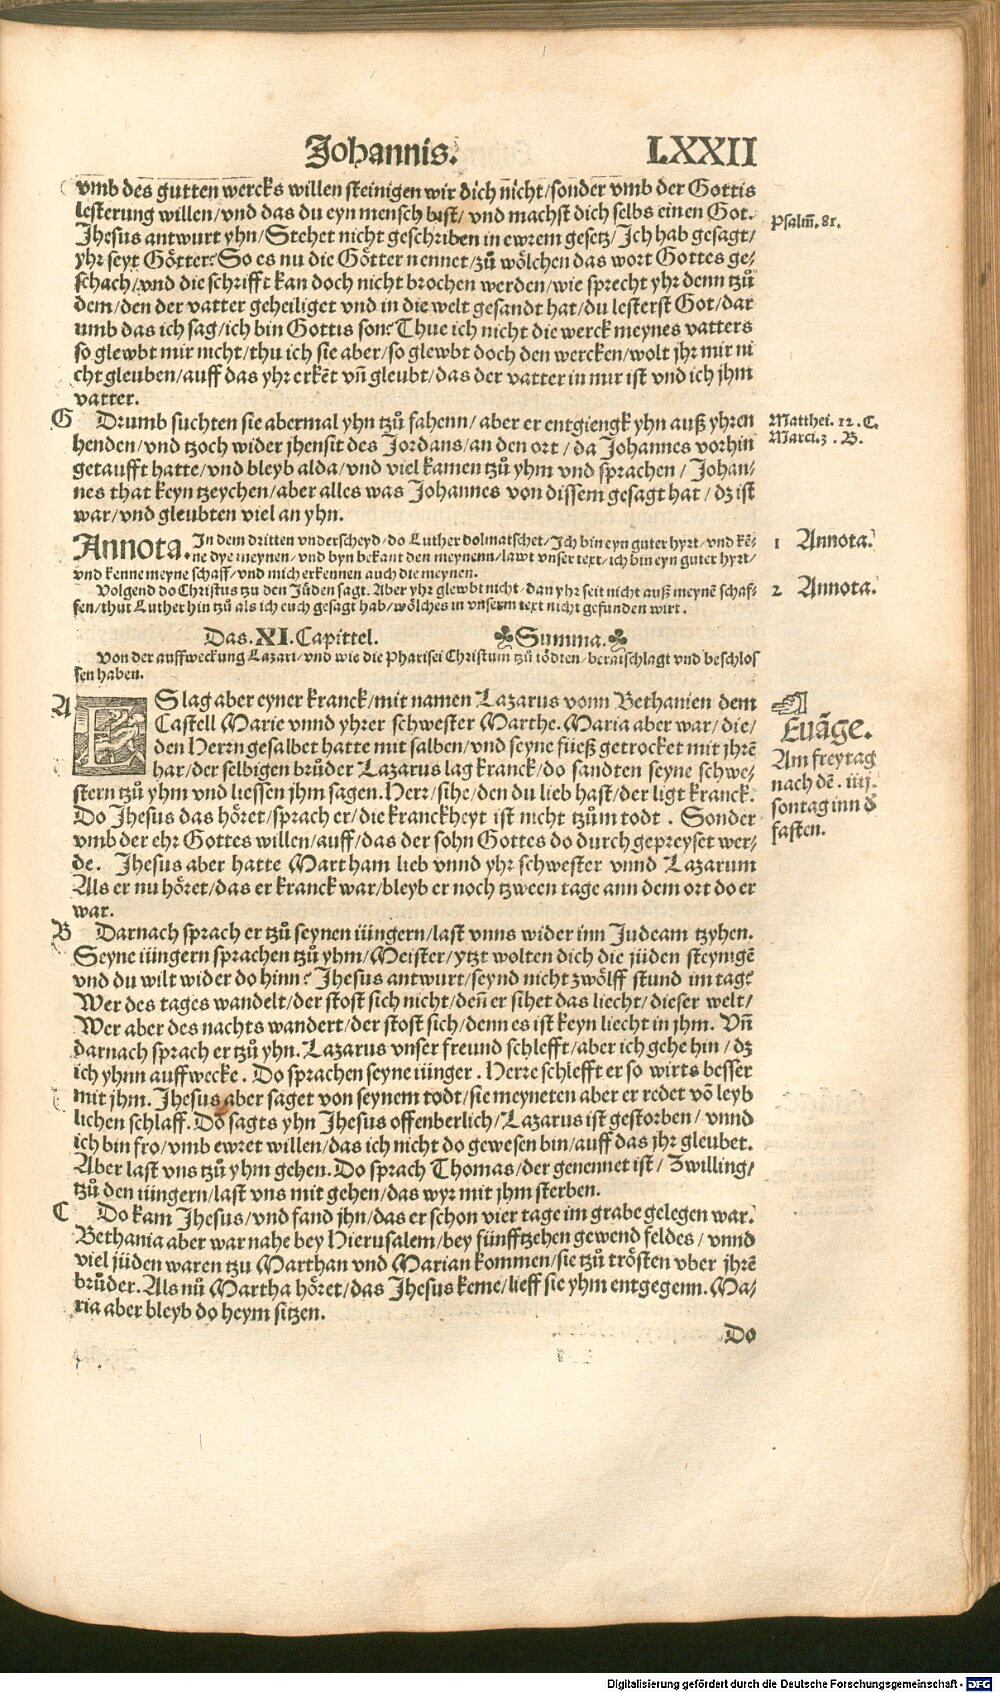 Johannis. LXXII
vmb des gutten wercks willen steinigen wir dich nicht/sonder vmb der Gottis
lesterung willen/vnd das du eyn mensch bist/vnd machst dich selbs einen Got.
Psalm̄. 81.
Jhesus antwurt yhn/Stehet nicht geschriben in ewrem gesetz/Ich hab gesagt/
yhr seyt Götter? So es nu die Götter nennet/zů wölchen das wort Gottes ge/
schach/vnd die schrifft kan doch nicht brochen werden/wie sprecht yhr denn tzů
dem/den der vatter geheiliget vnd in die welt gesandt hat/du lesterst Got/dar
umb das ich sag/ich bin Gottis son? Thue ich nicht die werck meynes vatters
so glewbt mir nicht/thu ich sie aber/so glewbt doch den wercken/wolt jhr mir ni
cht gleuben/auff das yhr erkēt vn̄ gleubt/das der vatter in mir ist vnd ich jhm
vatter.
G Drumb suchten sie abermal yhn tzů fahenn/aber er entgiengk yhn auß yhren
Matthei. 12. C.
Marci. 3. B.
henden/vnd tzoch wider jhensit des Jordans/an den ort/da Johannes vorhin
getaufft hatte/vnd bleyb alda/vnd viel kamen tzů yhm vnd sprachen/Johan/
nes that keyn tzeychen/aber alles was Johannes von dissem gesagt hat/dz ist
war/vnd gleubten viel an yhn.
Annota. In dem dritten vnderscheyd/do Luther dolmatschet/Ich bin eyn guter hyrt/vnd kē/
1 Annota.
ne dye meynen/vnd byn bekant den meynenn/lawt vnser text/ich bin eyn guter hyrt/
vnd kenne meyne schaff/vnd mich erkennen auch die meynen.
Volgend do Christus tzu den Jüden sagt. Aber yhr glewbt nicht/dan yhr seit nicht auß meynē schaf/
2 Annota.
fen/thut Luther hin tzů als ich euch gesagt hab/wölches in vnserm text nicht gefunden wirt.
Das. XI. Capittel. ☘Summa.☘
Von der auffweckung Lazari/vnd wie die Pharisei Christum tzů tödten/beratschlagt vnd beschlos
sen haben.
A ES lag aber eyner kranck/mit namen Lazarus vonn Bethanien dem
☞
Euāge.
Am freytag
nach dē. iiij.
sontag inn d̄
fasten.
Castell Marie vnnd yhrer schwester Marthe. Maria aber war/die/
den Herrn gesalbet hatte mit salben/vnd seyne füeß getrocket mit jhrē
har/der selbigen brůder Lazarus lag kranck/do sandten seyne schwe/
stern tzů yhm vnd liessen jhm sagen. Herr/sihe/den du lieb hast/der ligt kranck.
Do Jhesus das höret/sprach er/die kranckheyt ist nicht tzům todt. Sonder
vmb der ehr Gottes willen/auff/das der sohn Gottes do durch gepreyset wer/
de. Jhesus aber hatte Martham lieb vnnd yhr schwester vnnd Lazarum
Als er nu höret/das er kranck war/bleyb er noch tzween tage ann dem ort do er
war.
B Darnach sprach er tzů seynen iüngern/last vnns wider inn Judeam tzyhen.
Seyne iüngern sprachen tzů yhm/Meister/ytzt wolten dich die jüden steynigē
vnd du wilt wider do hinn? Jhesus antwurt/seynd nicht zwölff stund im tag?
Wer des tages wandelt/der stost sich nicht/den̄ er sihet das liecht/dieser welt/
Wer aber des nachts wandert/der stost sich/denn es ist keyn liecht in jhm. Vn̄
darnach sprach er tzů yhn. Lazarus vnser freund schlefft/aber ich gehe hin/dz
ich yhnn auffwecke. Do sprachen seyne iünger. Herre schlefft er so wirts besser
mit jhm. Jhesus aber saget von seynem todt/sie meyneten aber er redet vō leyb
lichen schlaff. Do sagts yhn Jhesus offenberlich/Lazarus ist gestorben/vnnd
ich bin fro/vmb ewret willen/das ich nicht do gewesen bin/auff das jhr gleubet.
Aber last vns tzů yhm gehen. Do sprach Thomas/der genennet ist/Zwilling/
tzů den iüngern/last vns mit gehen/das wyr mit jhm sterben.
C Do kam Jhesus/vnd fand jhn/das er schon vier tage im grabe gelegen war.
Bethania aber war nahe bey Hierusalem/bey fünfftzehen gewend feldes/vnnd
viel jüden waren tzu Marthan vnd Marian kommen/sie tzů trösten vber jhrē
brůder. Als nů Martha höret/das Jhesus keme/lieff sie yhm entgegenn. Ma/
ria aber bleyb do heym sitzen.
Do
Digitalisierung gefördert durch die Deutsche Forschungsgemeinschaft - DFG